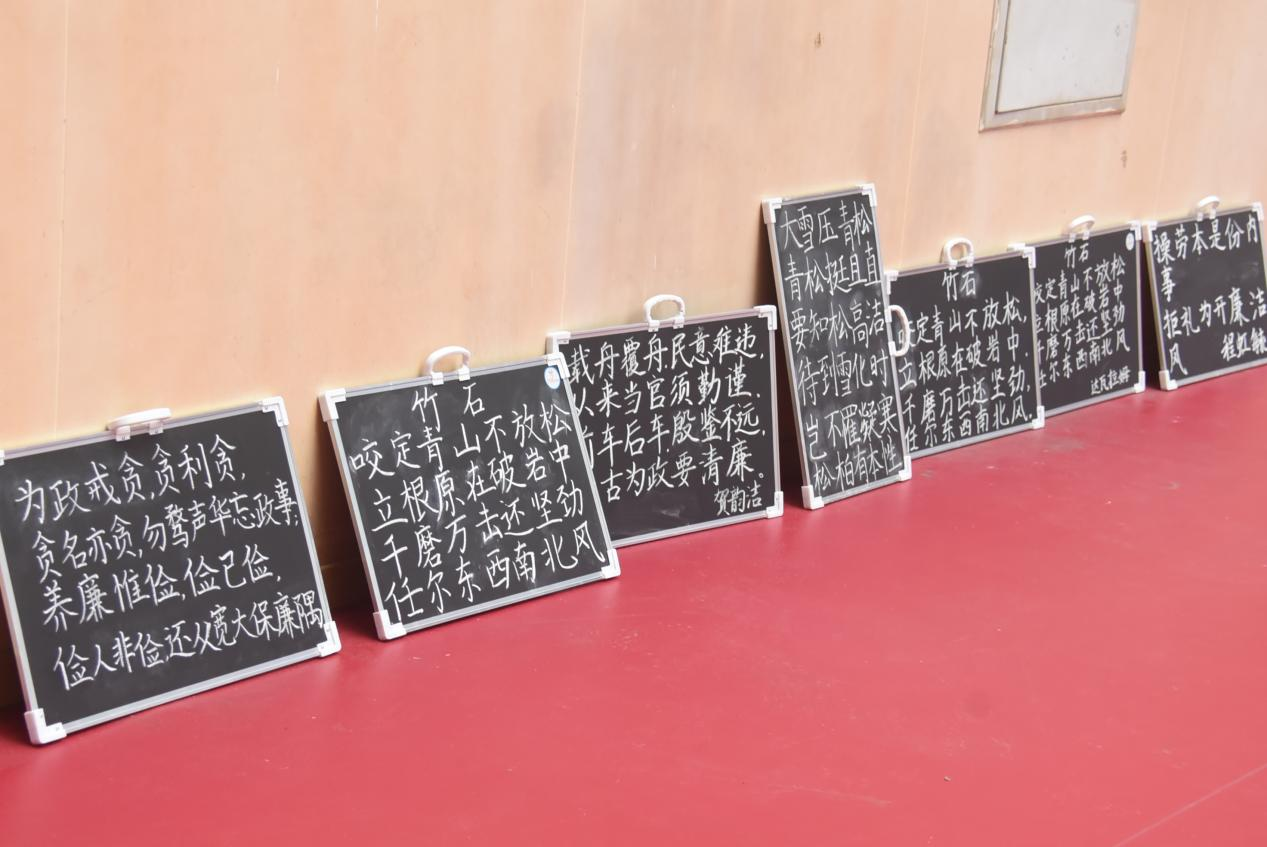 为政戒贪,贪利贪,
贪名亦贪,勿骛声华忘政事;
养廉惟俭,俭己俭,
俭人非俭,还从宽大保廉隅
竹石
咬定青山不放松
立根原在破岩中
千磨万击还坚劲
任尔东西南北风
载舟覆舟,民意难违,
从来当官须勤谨,
车后车殷鉴不远,
古为政要清廉。
贺韵洁
大雪压青松
青松挺且直
要知松高洁
待到雪化时
岂不罹凝寒
松柏有本性
竹石
咬定青山不放松,
立根原在破岩中,
千磨万击还坚劲,
任尔东西南北风.
竹石
咬定青山不放松
立根原在破岩中
千磨万击还坚劲
任尔东西南北风
达瓦拉姆
操劳本是份内
事
拒礼为开廉洁
风